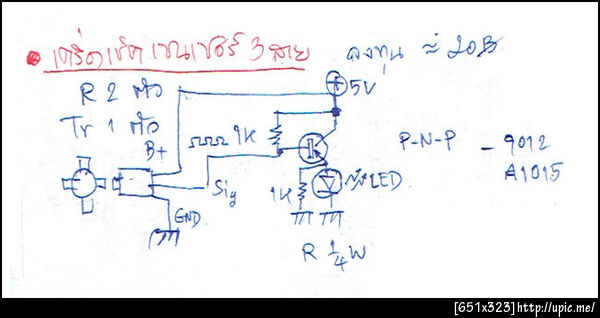 เครื่องเช็คเซนเซอร์ 3 สาย
ลงทุน ≈ 20฿
R 2 ตัว
Tr 1 ตัว
5V
B+
1K
P-N-P - 9012
A1015
Sig
1K
LED
GND
R 1/4 W
[651x323]http://upic.me/